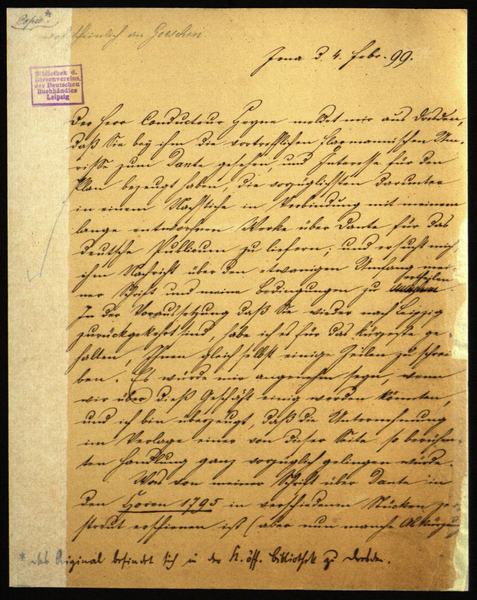 Copie.*
wahrscheinlich an Goeschen
Jena d. 4. Febr. 99.
Bibliothek d.
Börsenvereins
der Deutschen
Buchhändler
Leipzig
Der Herr Conducteur Hoyne meldet mir aus Dresden,
daß Sie bey ihm die vortrefflichen Flaxmannischen Um-
risse zum Dante gesehen, und Interesse für den
Plan bezeugt haben, die vorzüglichsten darunter
in einem Nachstiche in Verbindung mit meinem
lange entworfenen Werke über Dante für das
deutsche Publicum zu liefern; und ersucht mich
ihm Nachricht über den etwanigen Umfang mei-
ner Schrift und meine Bedingungen zu ertheilen.
In der Voraussetzung daß Sie wieder nach Leipzig
zurückgekehrt sind, habe ich es für das kürzeste ge-
halten, Ihnen gleich selbst einige Zeilen zu schrei-
ben. Es würde mir angenehm seyn, wenn
wir über dieß Geschäft einig werden könnten,
und ich bin überzeugt, daß die Unternehmung
im Verlage einer von dieser Seite so berühm-
ten Handlung ganz vorzüglich gelingen würde.
Was von meiner Schrift über Dante in
den Horen 1795 in verschiedenen Stücken zer-
streut erschienen ist (aber nun manche Abkürzung
* das Original befindet sich in der K. öff. Bibliothek zu Dresden.